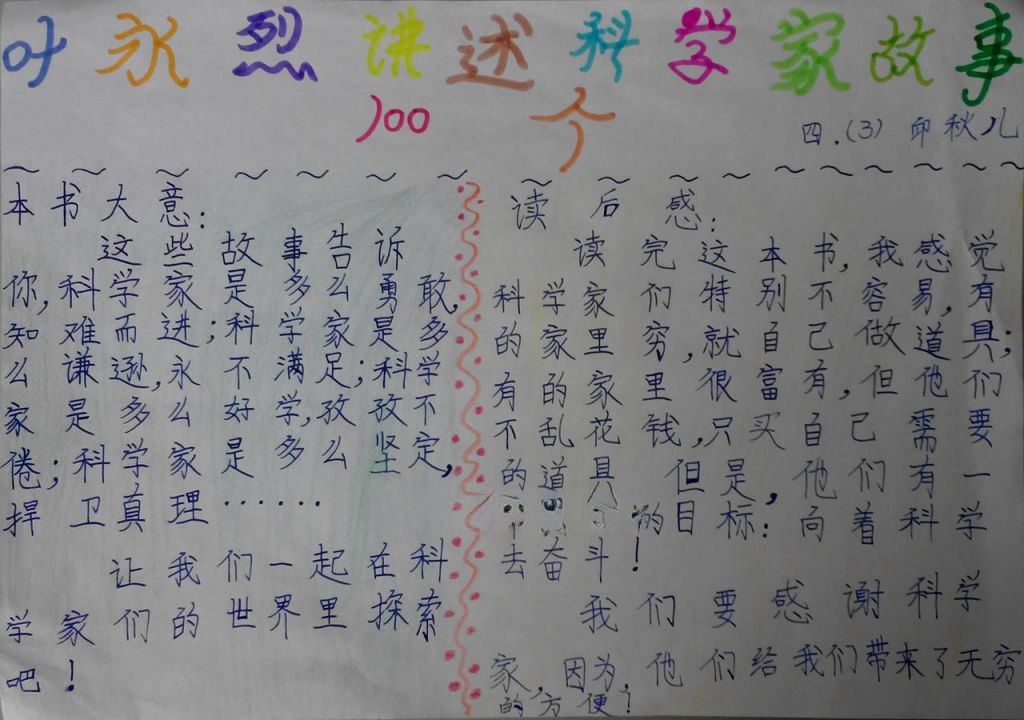 叶永烈讲述科学家故事
100个
四.(3) 印秋儿
本书大意:
这些故事告诉
你,科学家是多么勇敢,
知难而进;科学家是多
么谦逊,永不满足;科学
家是多么好学,孜孜不
倦;科学家是多么坚定,
捍卫真理……
让我们一起在科
学家们的世界里探索
吧!
读后感:
读完这本书,我感觉
科学家们特别不容易,有
的家里穷,就自己做道具;
有的家里很富有,但他们
不乱花钱,只买自己需要
的道具 但是,他们有一
的目标:向着科学
去奋斗!
我们要感谢科学
家,因为,他们给我们带来了无穷
的方便!